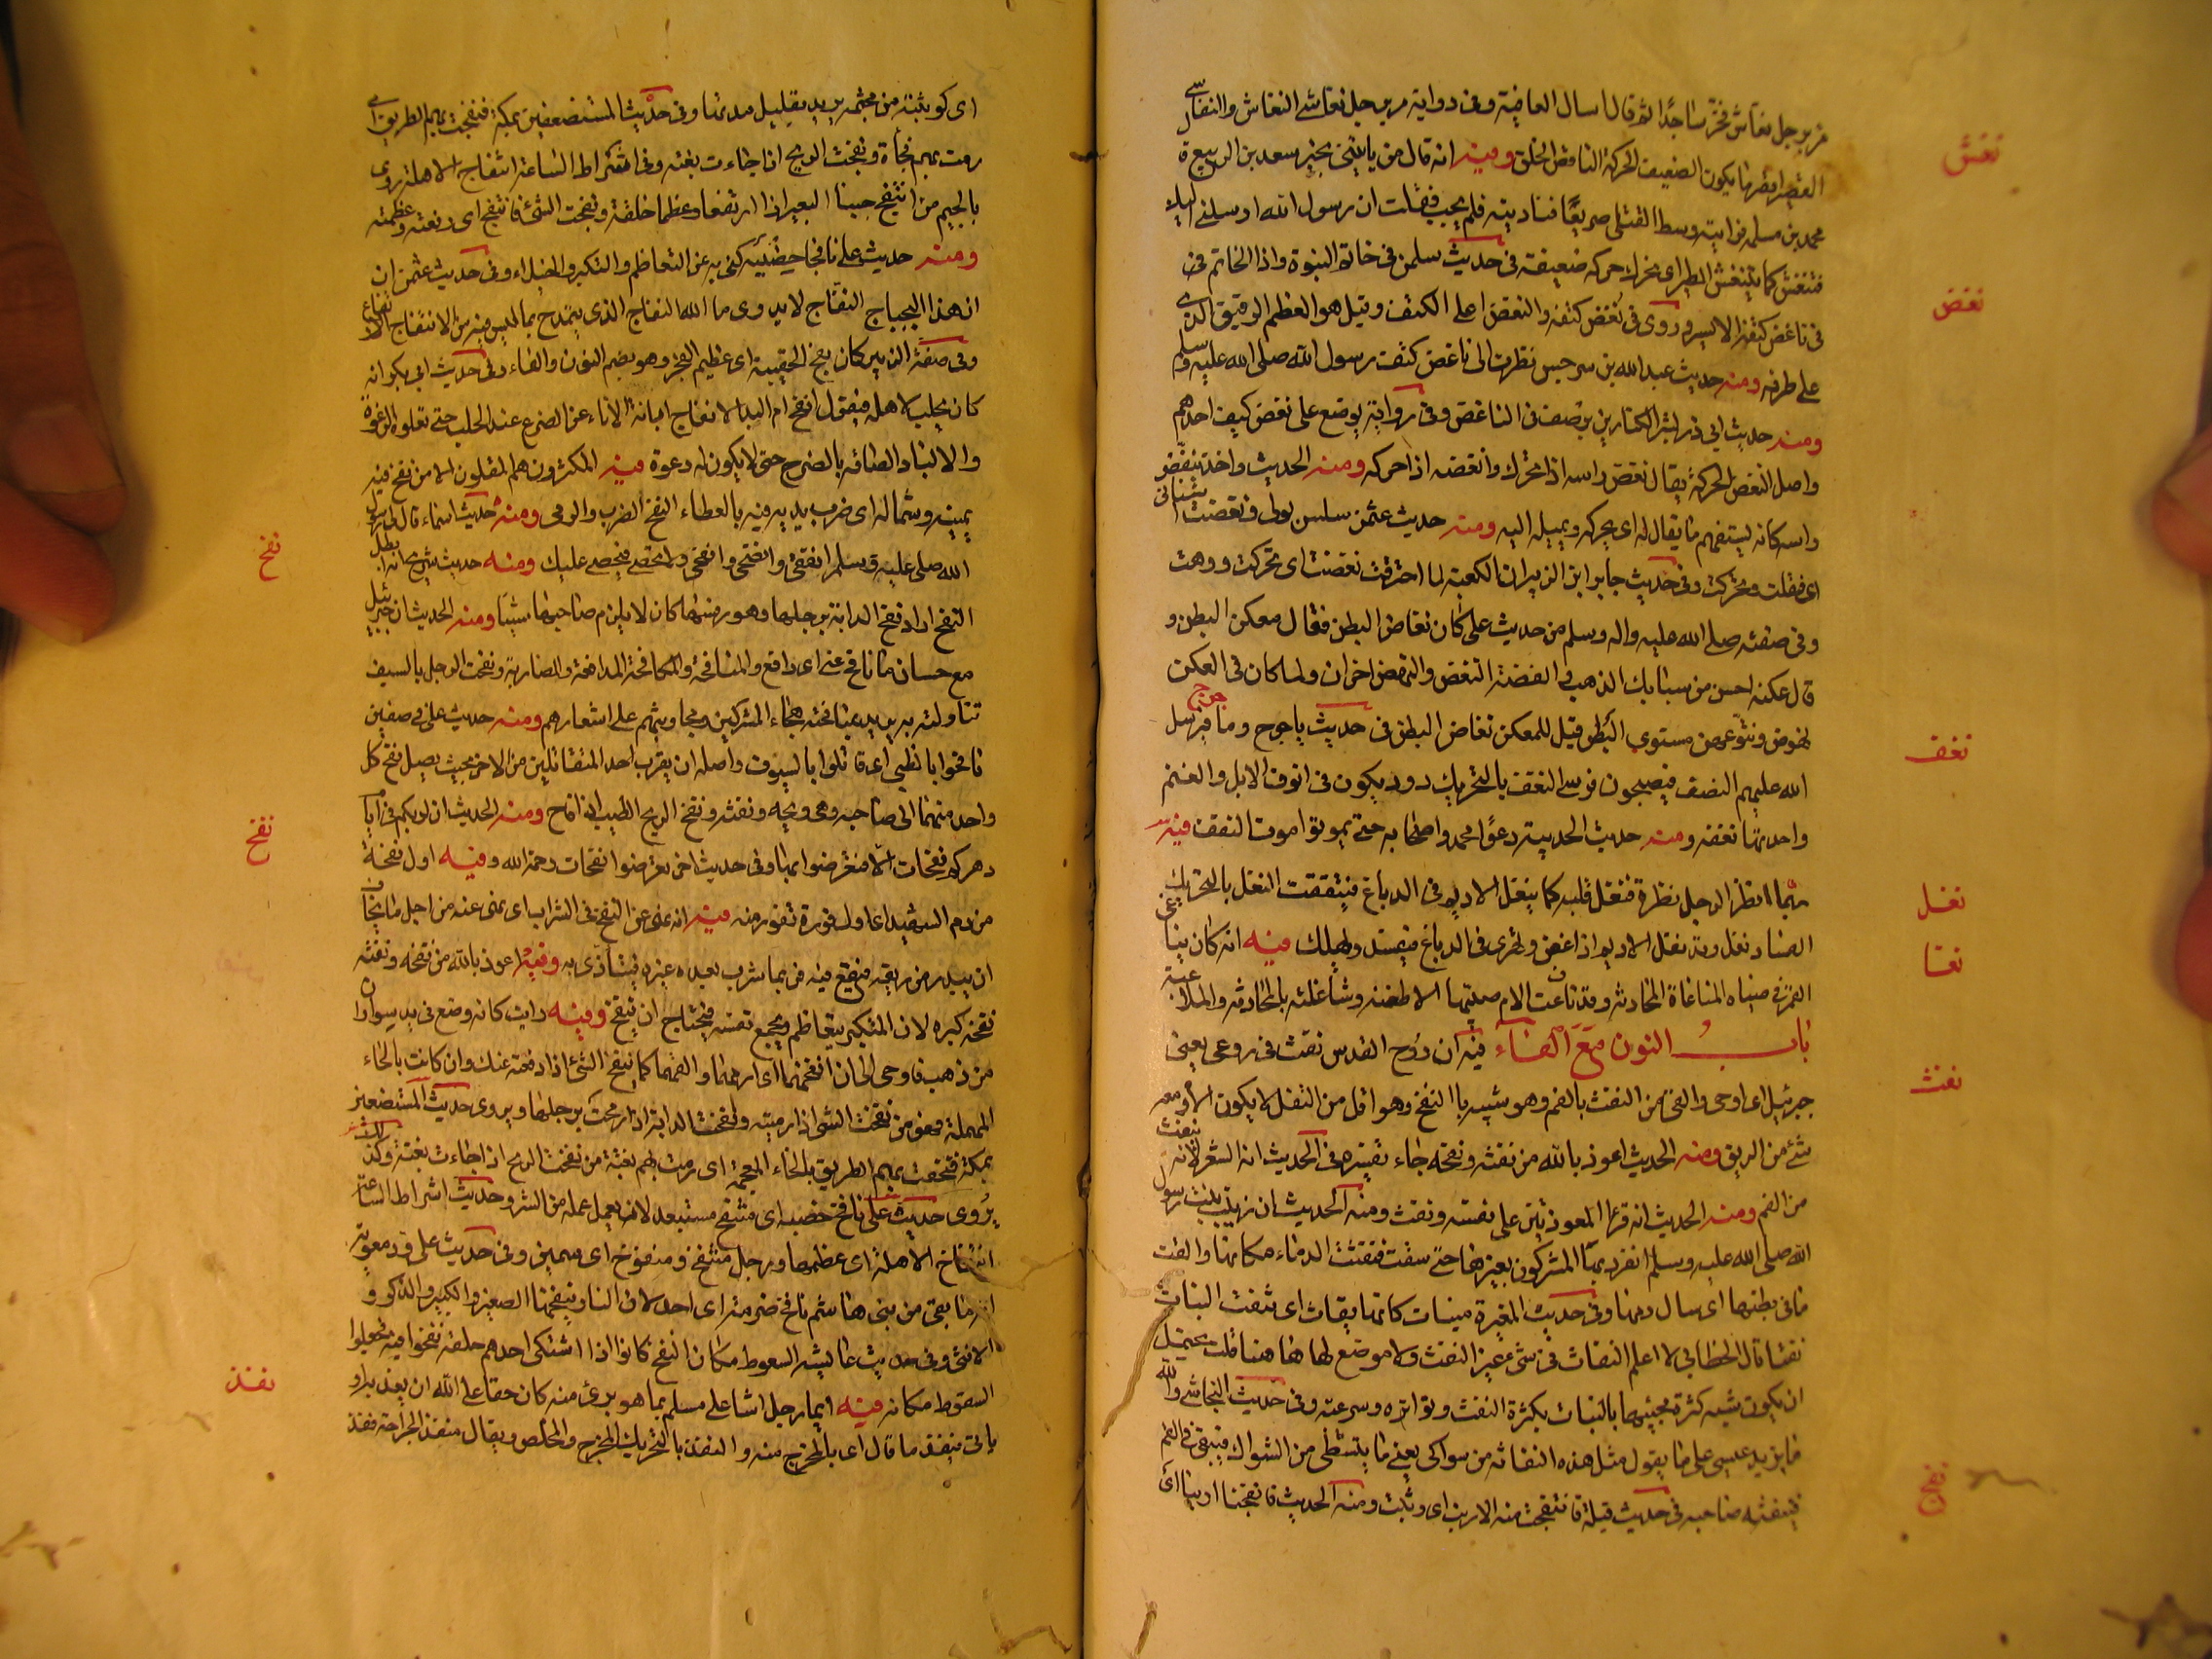 مر برجل نغاش فخر ساجدا ثم قال اسال العافية وفى رواية مر برجل نغاشى النغاش والنغاشى
نغش
القصير اقصر ما يكون الضعيف الحركة الناقص الخلق ومنه انه قال من ياتينى بخبر سعد بن الربيع قال
محمد بن مسلمة فرايته وسط القتلى صريعا فناديته فلم يجب فقلت ان رسول الله ارسلنى اليك
فتنغش كما يتنغش الطير اى تحرك حركة ضعيفة فى حديث سلمن فى خاتم النبوة واذا الخاتم فى
نغض
فى ناغض كتفه الايسر وروى فى نغض كتفه والنغض اعلى الكتف وقيل هو العظم الرقيق الذى
على طرفه ومنه حديث عبد الله بن سرجس نظرت الى ناغض كتف رسول الله صلى الله عليه وسلم
ومنه حديث ابى ذر بشر الكنازين برضف فى الناغض وفى رواية يوضع على نغض كتف احدهم
واصل النغض الحركة يقال نغض راسه اذا تحرك وانغضه اذا حركه ومنه الحديث واخذ ينغض
راسه كانه يستفهم ما يقال له اى يحركه ويميله اليه ومنه حديث عثمن سلس بولى ونغضت اسنانى
اى قلقت وتحركت وفى حديث جابر ابن الزبير ان الكعبة لما احترقت نغضت اى تحركت ووهت
وفى صفته صلى الله عليه واله وسلم من حديث على كان نغاض البطن فقال معكن البطن و
قال عكنه احسن من سبائك الذهب والفضة النغض والنهض اخوان ولما كان فى العكن
نهوض ونتو عن مستوى البطن قيل للمعكن نغاض البطن فى حديث ياجوج وماجوج فيرسل
نغف
الله عليهم النغف فيصبحون فرسى النغف بالتحريك دود يكون فى انوف الابل والغنم
واحدتها نغفة ومنه حديث الحديبية دعوا محمدا واصحابه حتى يموتوا موت النغف فيه
ربما نظر الرجل نظرة فنغل قلبه كما ينغل الاديم فى الدباغ فيتفتت النغل بالتحريك
نغل
الفساد نغل وقد نغل الاديم اذا عفن وتهرى فى الدباغ فيفسد ويهلك فيه انه كان يناغى
نغا
القمر فى صباه المناغاة المحادثة وقد ناغت الام صبيها لاطفته وشاغلته بالمحادثة والملاعبة
باب النون مع الفاء فيه ان روح القدس نفث فى روعى يعنى
نفث
جبرئيل اى اوحى والقى من النفث بالفم وهو شبيه بالنفخ وهو اقل من التفل لا يكون الا ومعه
شئ من الريق ومنه الحديث اعوذ بالله من نفثه ونفخه جاء تفسيره فى الحديث انه الشعر لانه ينفث
من الفم ومنه الحديث انه قرا المعوذتين على نفسه ونفث ومنه الحديث ان زينب بنت رسول
الله صلى الله عليه وسلم انفر بها المشركون بعيرها حتى سقطت فنفثت الدماء مكانها والقت
ما فى بطنها اى سال دمها وفى حديث المغيرة مينات كانها نفاث اى تنفث البنات
نفثا قال الخطابى لا اعلم النفاث فى شئ غير النفث ولا موضع لها هاهنا قلت يحتمل
ان يكون شبه كثرة مجيئها بالبنات بكثرة النفث وتواتره وسرعته وفى حديث النجاشى والله
ما يزيد عيسى على ما يقول مثل هذه النفاثة من سواكى يعنى ما يتشظى من السواك فيبقى فى الفم
نفج
فينفثه صاحبه فى حديث قيلة فانتفجت منه الارنب اى وثبت ومنه الحديث فانفجنا ارنبا اى
اى كوثبته من مجثمه يريد تقليل مدتها وفى حديث المستضعفين بمكة فنفجت بهم الطريق اى
رمت بهم فجأة ونفجت الريح اذا جاءت بغتة وفى اشراط الساعة انتفاج الاهلة روى
بالجيم من انتفج جنبا البعير اذا ارتفعا وعظما خلقة ونفجت الشئ فانتفج اى رفعته وعظمته
ومنه حديث على نافجا حضنيه كنى به عن التعاظم والتكبر والخيلاء وفى حديث عثمن ان
ان هذا البجباج النفاج لا يدرى ما الله النفاج الذى يتمدح بما ليس فيه من الانتفاج الارتفاع
وفى صفة الزبير كان نفج الحقيبة اى عظيم العجز وهو بضم النون والفاء وفى حديث ابى بكر انه
كان يحلب لاهله فيقول انفج ام البد الانفاج ابانة الاناء عن الضرع عند الحلب حتى تعلوه الرغوة
والالباد الصاقه بالضرع حتى لا يكون له دعوة فيه المكثرون هم المقلون الا من نفح فيه
يمينه وشماله اى ضرب يديه فيه بالعطاء النفح الضرب والرمى ومنه حديث اسماء قال لى رسول
نفح
الله صلى عليه وسلم انفقى وانضحى وانفحى ولا تحصى فيحصى عليك ومنه حديث شريح انه ابطل
النفح اراد نفح الدابة برجلها وهو رفسها كان لا يلزم صاحبها شيئا ومنه الحديث ان جبرئيل
مع حسان ما نافح عنى اى دافع والمنافحة والمكافحة المدافعة والمضاربة ونفحت الرجل بالسيف
تناولته به يريد بمنافحته هجاء المشركين ومجاوبتهم على اشعارهم ومنه حديث على فى صفين
نافحوا بالظبى اى قاتلوا بالسيوف واصله ان يقرب احد المتقاتلين من الاخر بحيث يصل نفح كل
واحد منهما الى صاحبه وهى ريحه ونفسه ونفح الريح الطيب اذا فاح ومنه الحديث ان لربكم فى ايام
نفح
دهركم نفحات الا فتعرضوا لها وفى حديث اخر تعرضوا لنفحات رحمة الله وفيه اول نفحة
من دم الشهيد اى اول فورة تفور منه فيه انه نهى عن النفخ فى الشراب اى نهى عنه من اجل ما يخاف
ان يبدر من ريقه فيقع فيه فربما شرب بعده غيره فيتأذى به وفيه اعوذ بالله من نفخه ونفثه
نفخه كبره لان المتكبر يتعاظم ويجمع نفسه فيحتاج ان ينفخ وفيه رايت كانه وضع فى يدى سواران
من ذهب فاوحى الى ان انفخهما اى ارمهما والقهما كما ينفخ الشئ اذا دفعته عنك وان كانت بالحاء
المهملة فهو من نفحت الشئ اذا رميته ونفحت الدابة اذا رمحت برجلها ويروى حديث المستضعفين
بمكة فنفخت بهم الطريق بالخاء المعجمة اى رمت بهم بغتة من نفخت الريح اذا جاءت بغتة وكذلك
يروى حديث على نافخ حضنيه اى منتفخ مستعد لان يعمل عمله من الشر وحديث اشراط الساعة
انتفاخ الاهلة اى عظمها ورجل منتفخ ومنفوخ اى سمين وفى حديث على ود معوية
انه ما بقى من بنى هاشم نافخ ضرمة اى احد لان النار ينفخها الصغير والكبير والذكر و
الانثى وفى حديث عائشة السعوط مكان النفخ كانوا اذا اشتكى احدهم حلقه نفخوا فيه فجعلوا
السعوط مكانه فيه ايما رجل اشاع على مسلم بما هو برئ منه كان حقا على الله ان يعذبه او
نفذ
ياتى بنفذ ما قال اى بالمخرج منه والنفذ بالتحريك المخرج والمخلص ويقال منفذ الجراحة نفذ